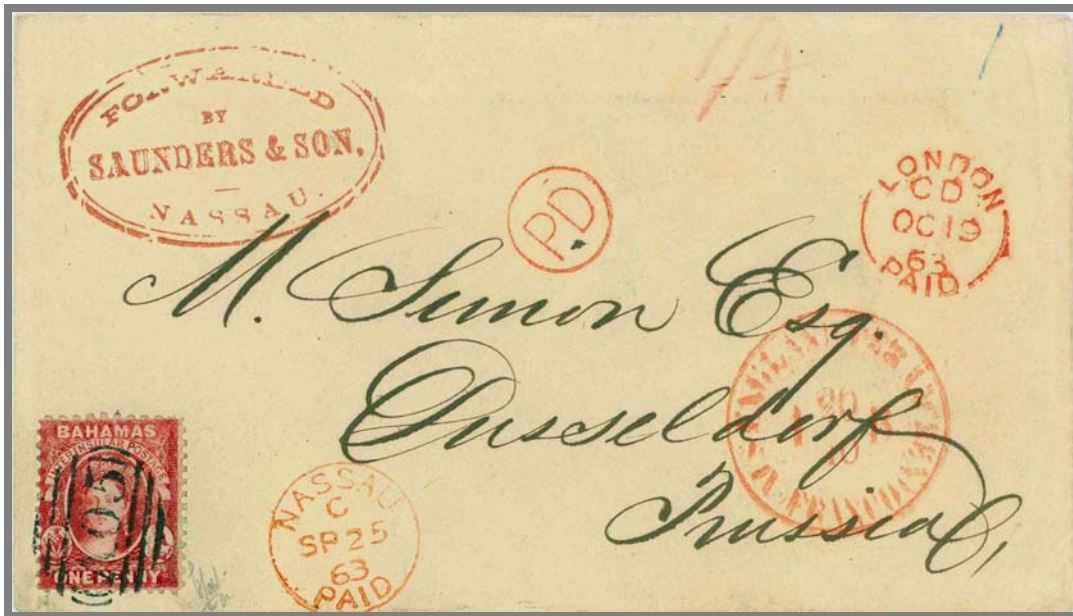 FORWARDED
BY
SAUNDERS & SON,
NASSAU.
1/4
PD
LONDON
CD
OC 19
63
PAID
M. Simon Esq.
Dusseldorf
Prussia
BAHAMAS
INTERINSULAR POSTAGE
ONE PENNY
A05
NASSAU
C
SP 25
63
PAID
20
10
FRANCO